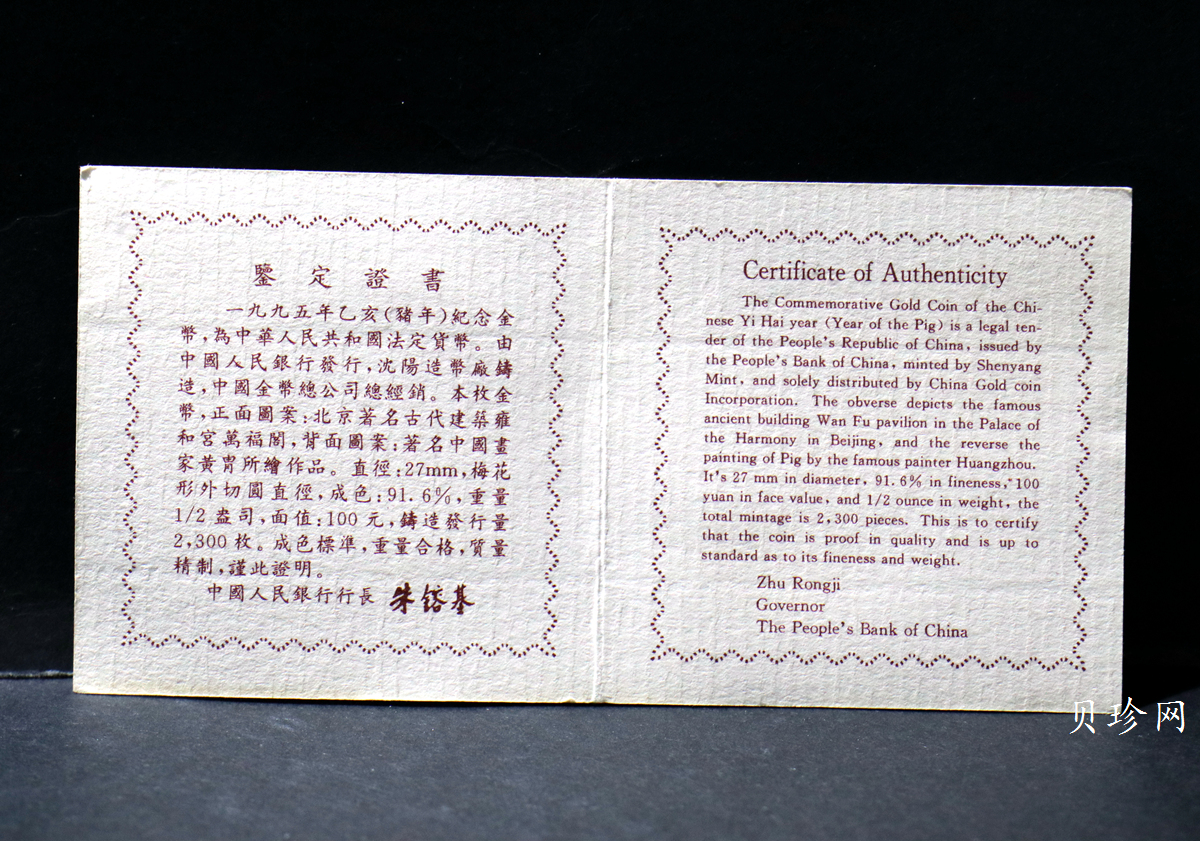 鑒定證書
一九九五年乙亥(豬年)紀念金
幣,為中華人民共和國法定貨幣。由
中國人民銀行發行,沈陽造幣廠鑄
造,中國金幣總公司總經銷。本枚金
幣,正面圖案:北京著名古代建築雍
和宮萬福閣,背面圖案:著名中國畫
家黃胄所繪作品。直徑:27mm,梅花
形外切圓直徑,成色:91.6%,重量
1/2盎司,面值:100元,鑄造發行量
2,300枚。成色標準,重量合格,質量
精制,謹此證明。
中國人民銀行行長 朱鎔基
Certificate of Authenticity
The Commemorative Gold Coin of the Chi-
nese Yi Hai year (Year of the Pig) is a legal ten-
der of the People's Republic of China, issued by
the People's Bank of China, minted by Shenyang
Mint, and solely distributed by China Gold coin
Incorporation. The obverse depicts the famous
ancient building Wan Fu pavilion in the Palace of
the Harmony in Beijing, and the reverse the
painting of Pig by the famous painter Huangzhou.
It's 27 mm in diameter, 91.6% in fineness, 100
yuan in face value, and 1/2 ounce in weight, the
total mintage is 2,300 pieces. This is to certify
that the coin is proof in quality and is up to
standard as to its fineness and weight.
Zhu Rongji
Governor
The People's Bank of China
贝珍网